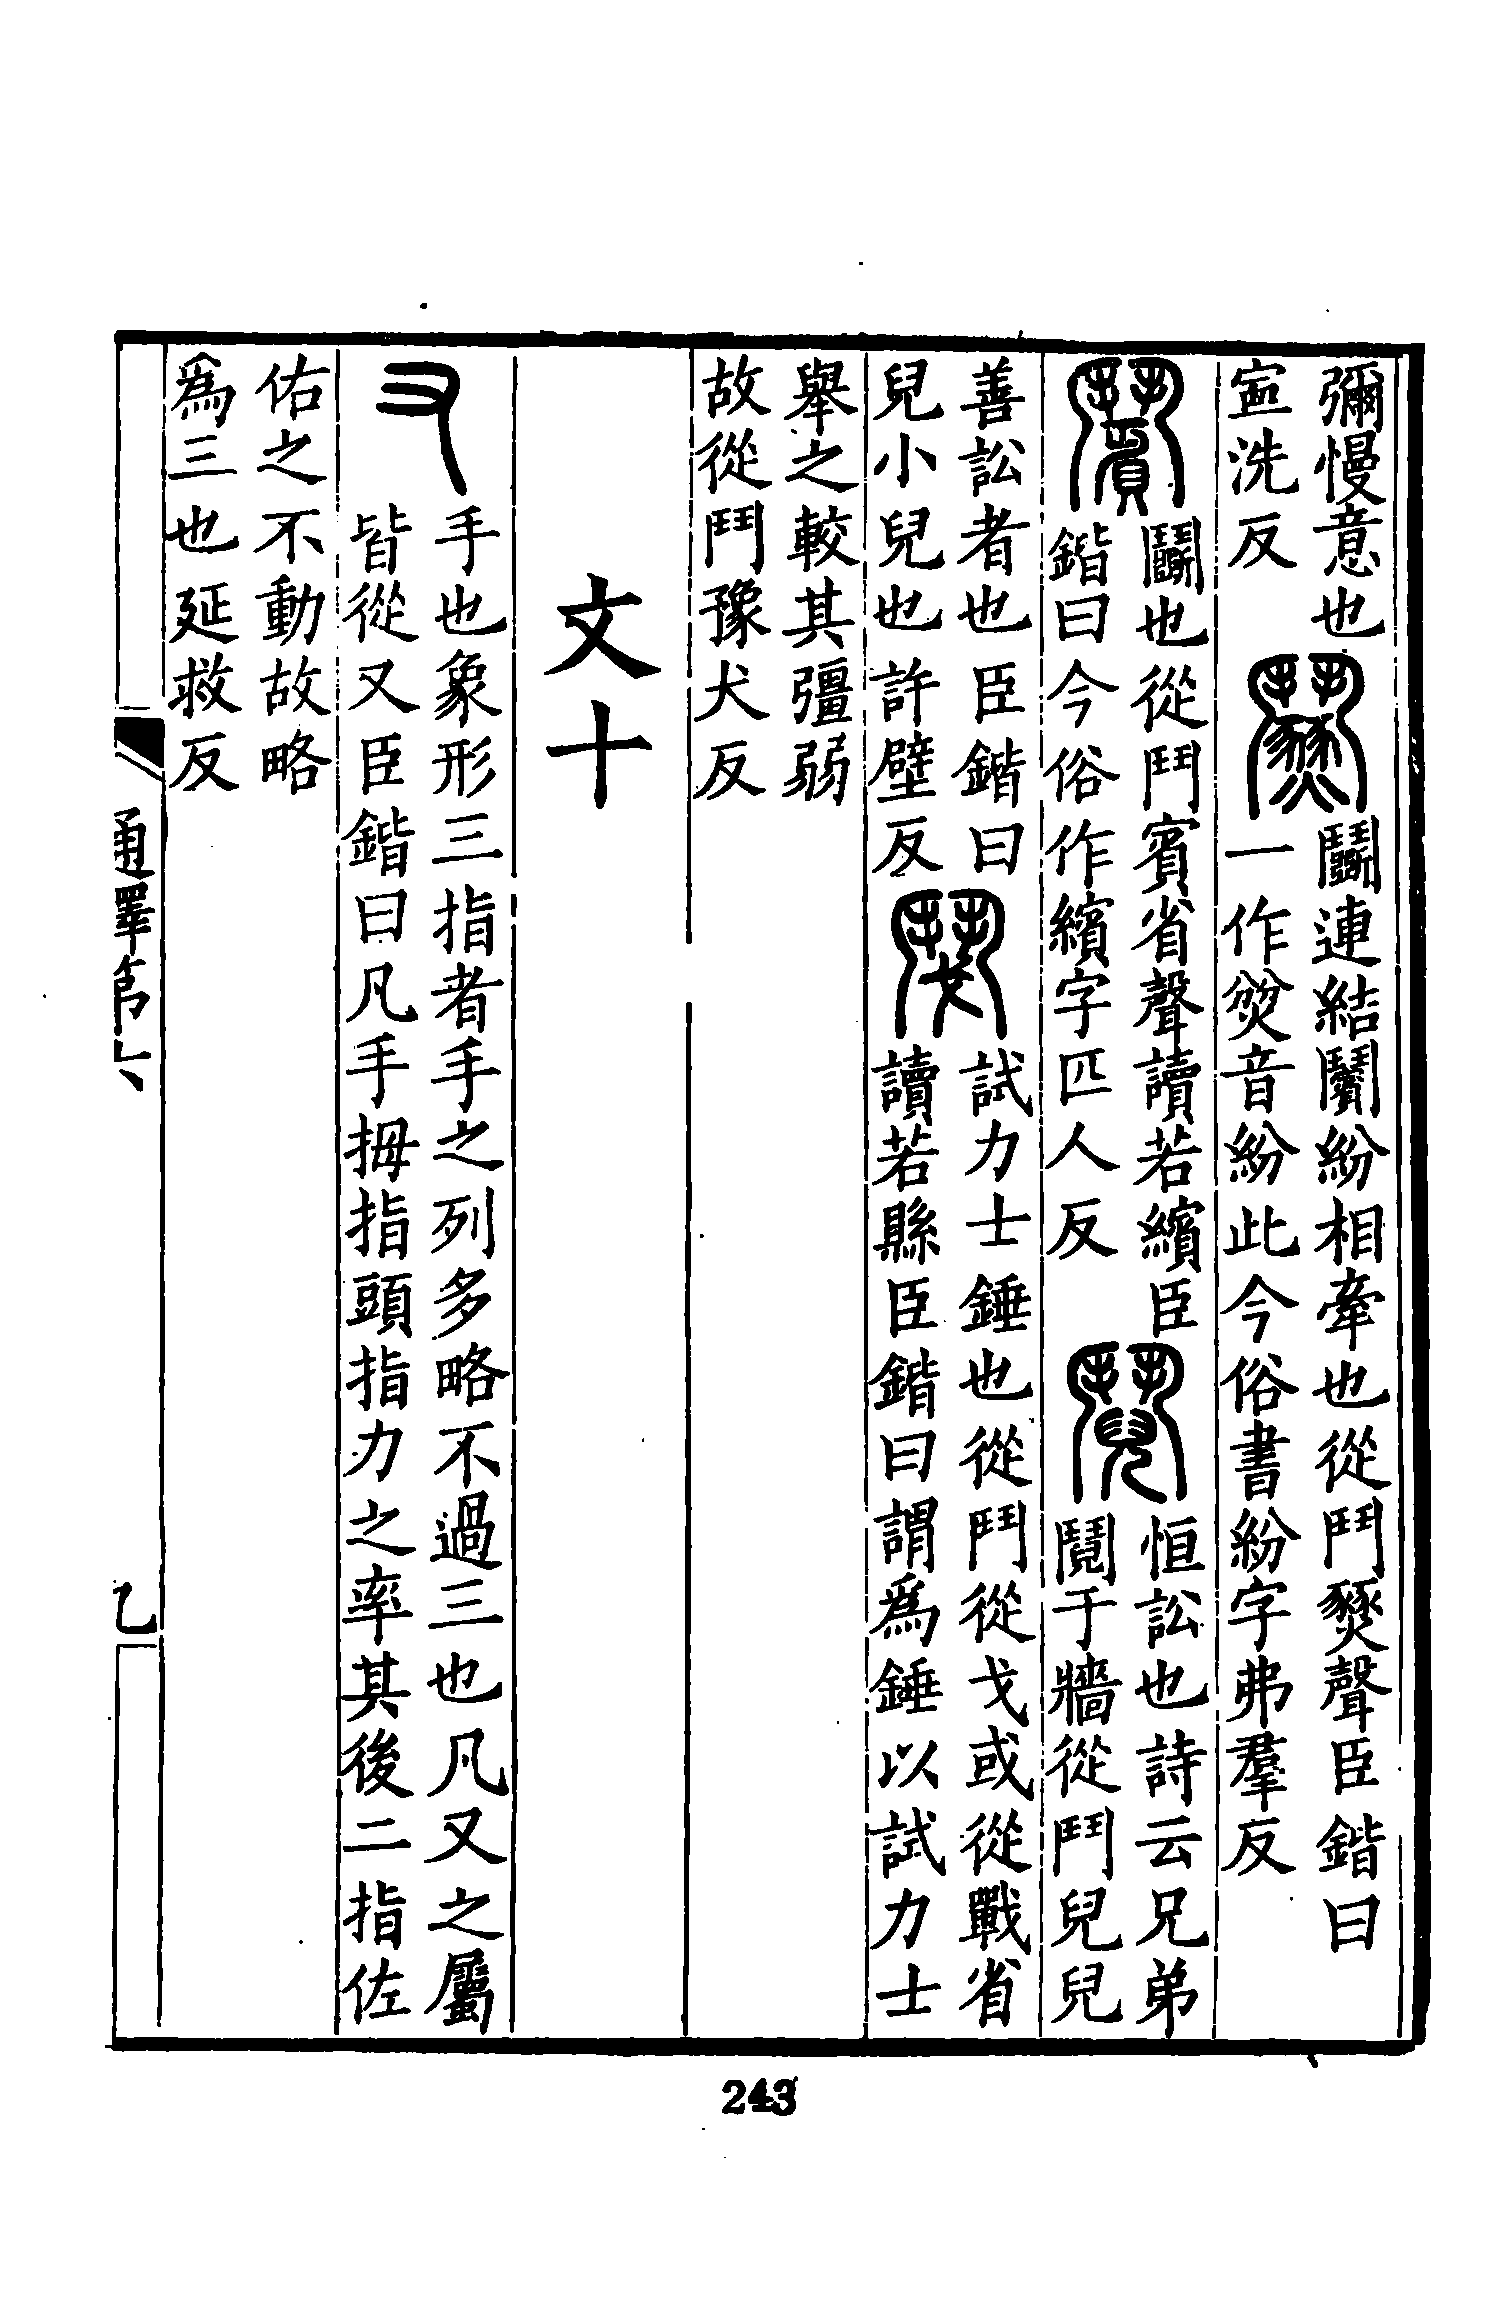 彌慢意也
洗反
鬭連結紛相牽也從鬥燹聲臣鍇曰
一作音紛此今俗書紛字弗羣反
鬭也從鬥賓省聲讀若繽臣
鍇曰今俗作繽字匹人反
鬩
恒訟也詩云兄弟
鬩于牆從鬥兒兒
善訟者也臣鍇曰
兒小兒也許壁反
試力士錘也從鬥從戈或從戰省
讀若縣臣鍇曰謂為錘以試力士
舉之較其彊弱
故從鬥豫犬反
文十
又
手也象形三指者手之列多略不過三也凡又之屬
皆從又臣鍇曰凡手拇指頭指力之率其後二指佐
佑之不動故略
為三也延救反
通釋第六
乙
243